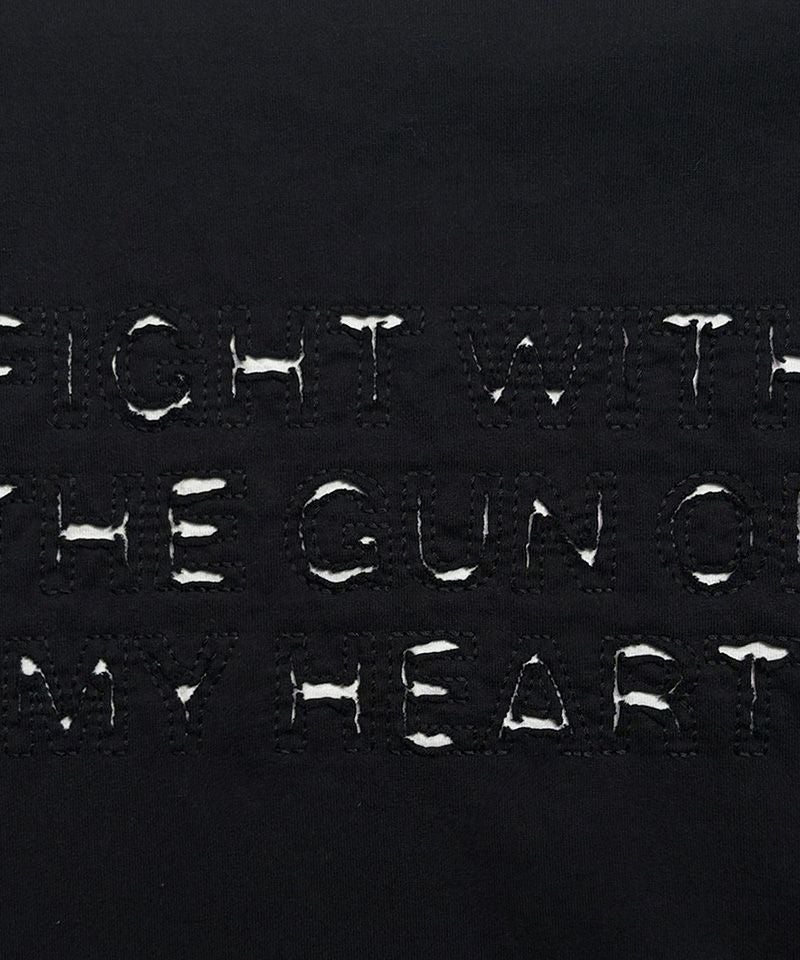 FIGHT WITH
THE GUN OF
MY HEART